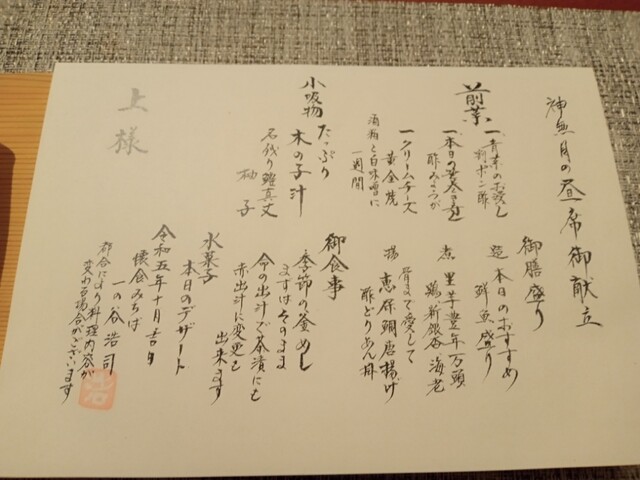 神無月の昼席御献立
前菜
一青菜のお浸し
割ポン酢
一本日の
酢みょうが
一クリームチーズ
黄金焼
酒粕と白味噌に
一週間
小吸物
たっぷり
木の子汁
名残り鱧真丈
柚子
上様
御膳盛り
造 本日のおすすめ
鮮魚盛り
煮 里芋豊年万頭
鶏 新銀杏 海老
骨まで愛して
揚 恵保鯛唐揚げ
酢どりあん掛
御食事
季節の釜めし
ますはそのまま
今の出汁で茶漬にも
赤出汁に変更も
出来ます
水菓子
本日のデザート
令和五年十月吉日
懐食みちば
一の谷浩司
都合により料理内容が
変わる場合がございます